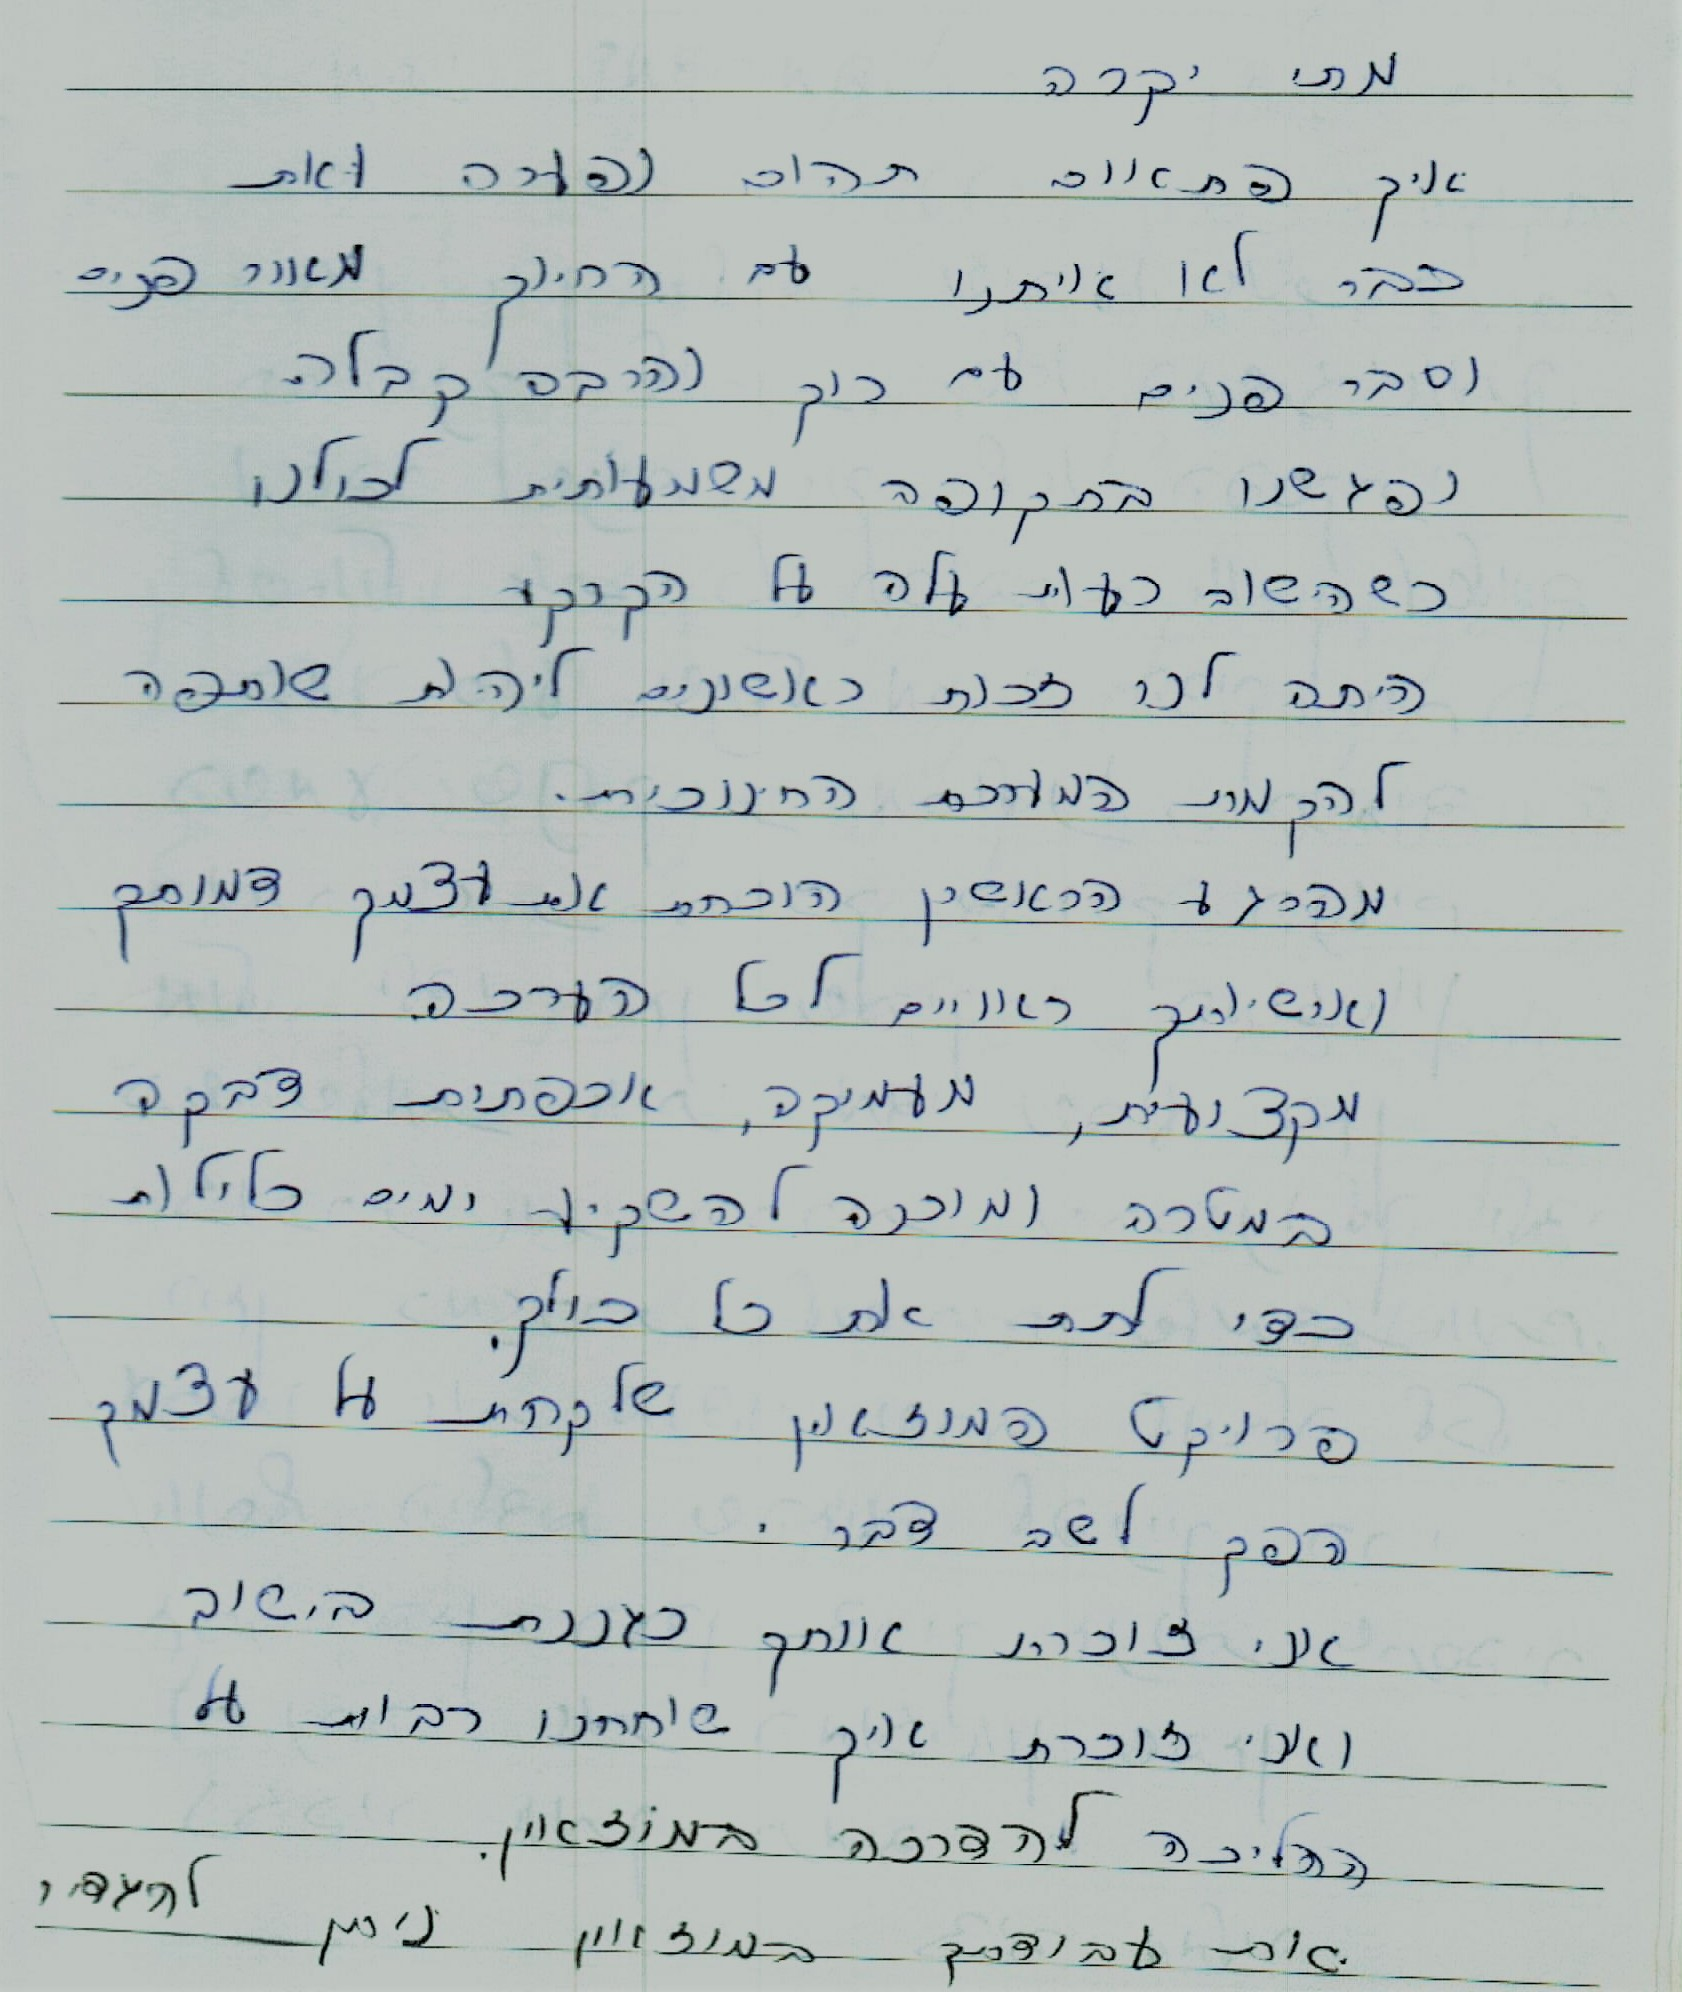 מתי יקרה
איך פתאום תהום נפערה ואת
כבר לא איתנו עם החיוך מאור פנים
וסבר פנים עם רוך והרבה קבלה
נפגשנו בתקופה משמעותית לכולנו
כשהישוב רעות עלה על הקרקע
היתה לנו זכות ראשונים ליהות שותפה
להקמת המערכת החינוכית.
מהרגע הראשון הוכחת את עצמך דמותך
ואישיותך ראויים לכל הערכה
מקצועית, מעמיקה, אכפתית דבקה
במטרה ומוכנה להשקיע ימים כלילות
כדי לתת את כל כולך.
פרויקט המוזאון שלקחת על עצמך
הפך לשם דבר.
אני זוכרת אותך כגננת בישוב
ואני זוכרת איך שוחחנו רבות על
ההליכה להדרכה במוזאון.
את עבודתך במוזאון ניתן להגדיר